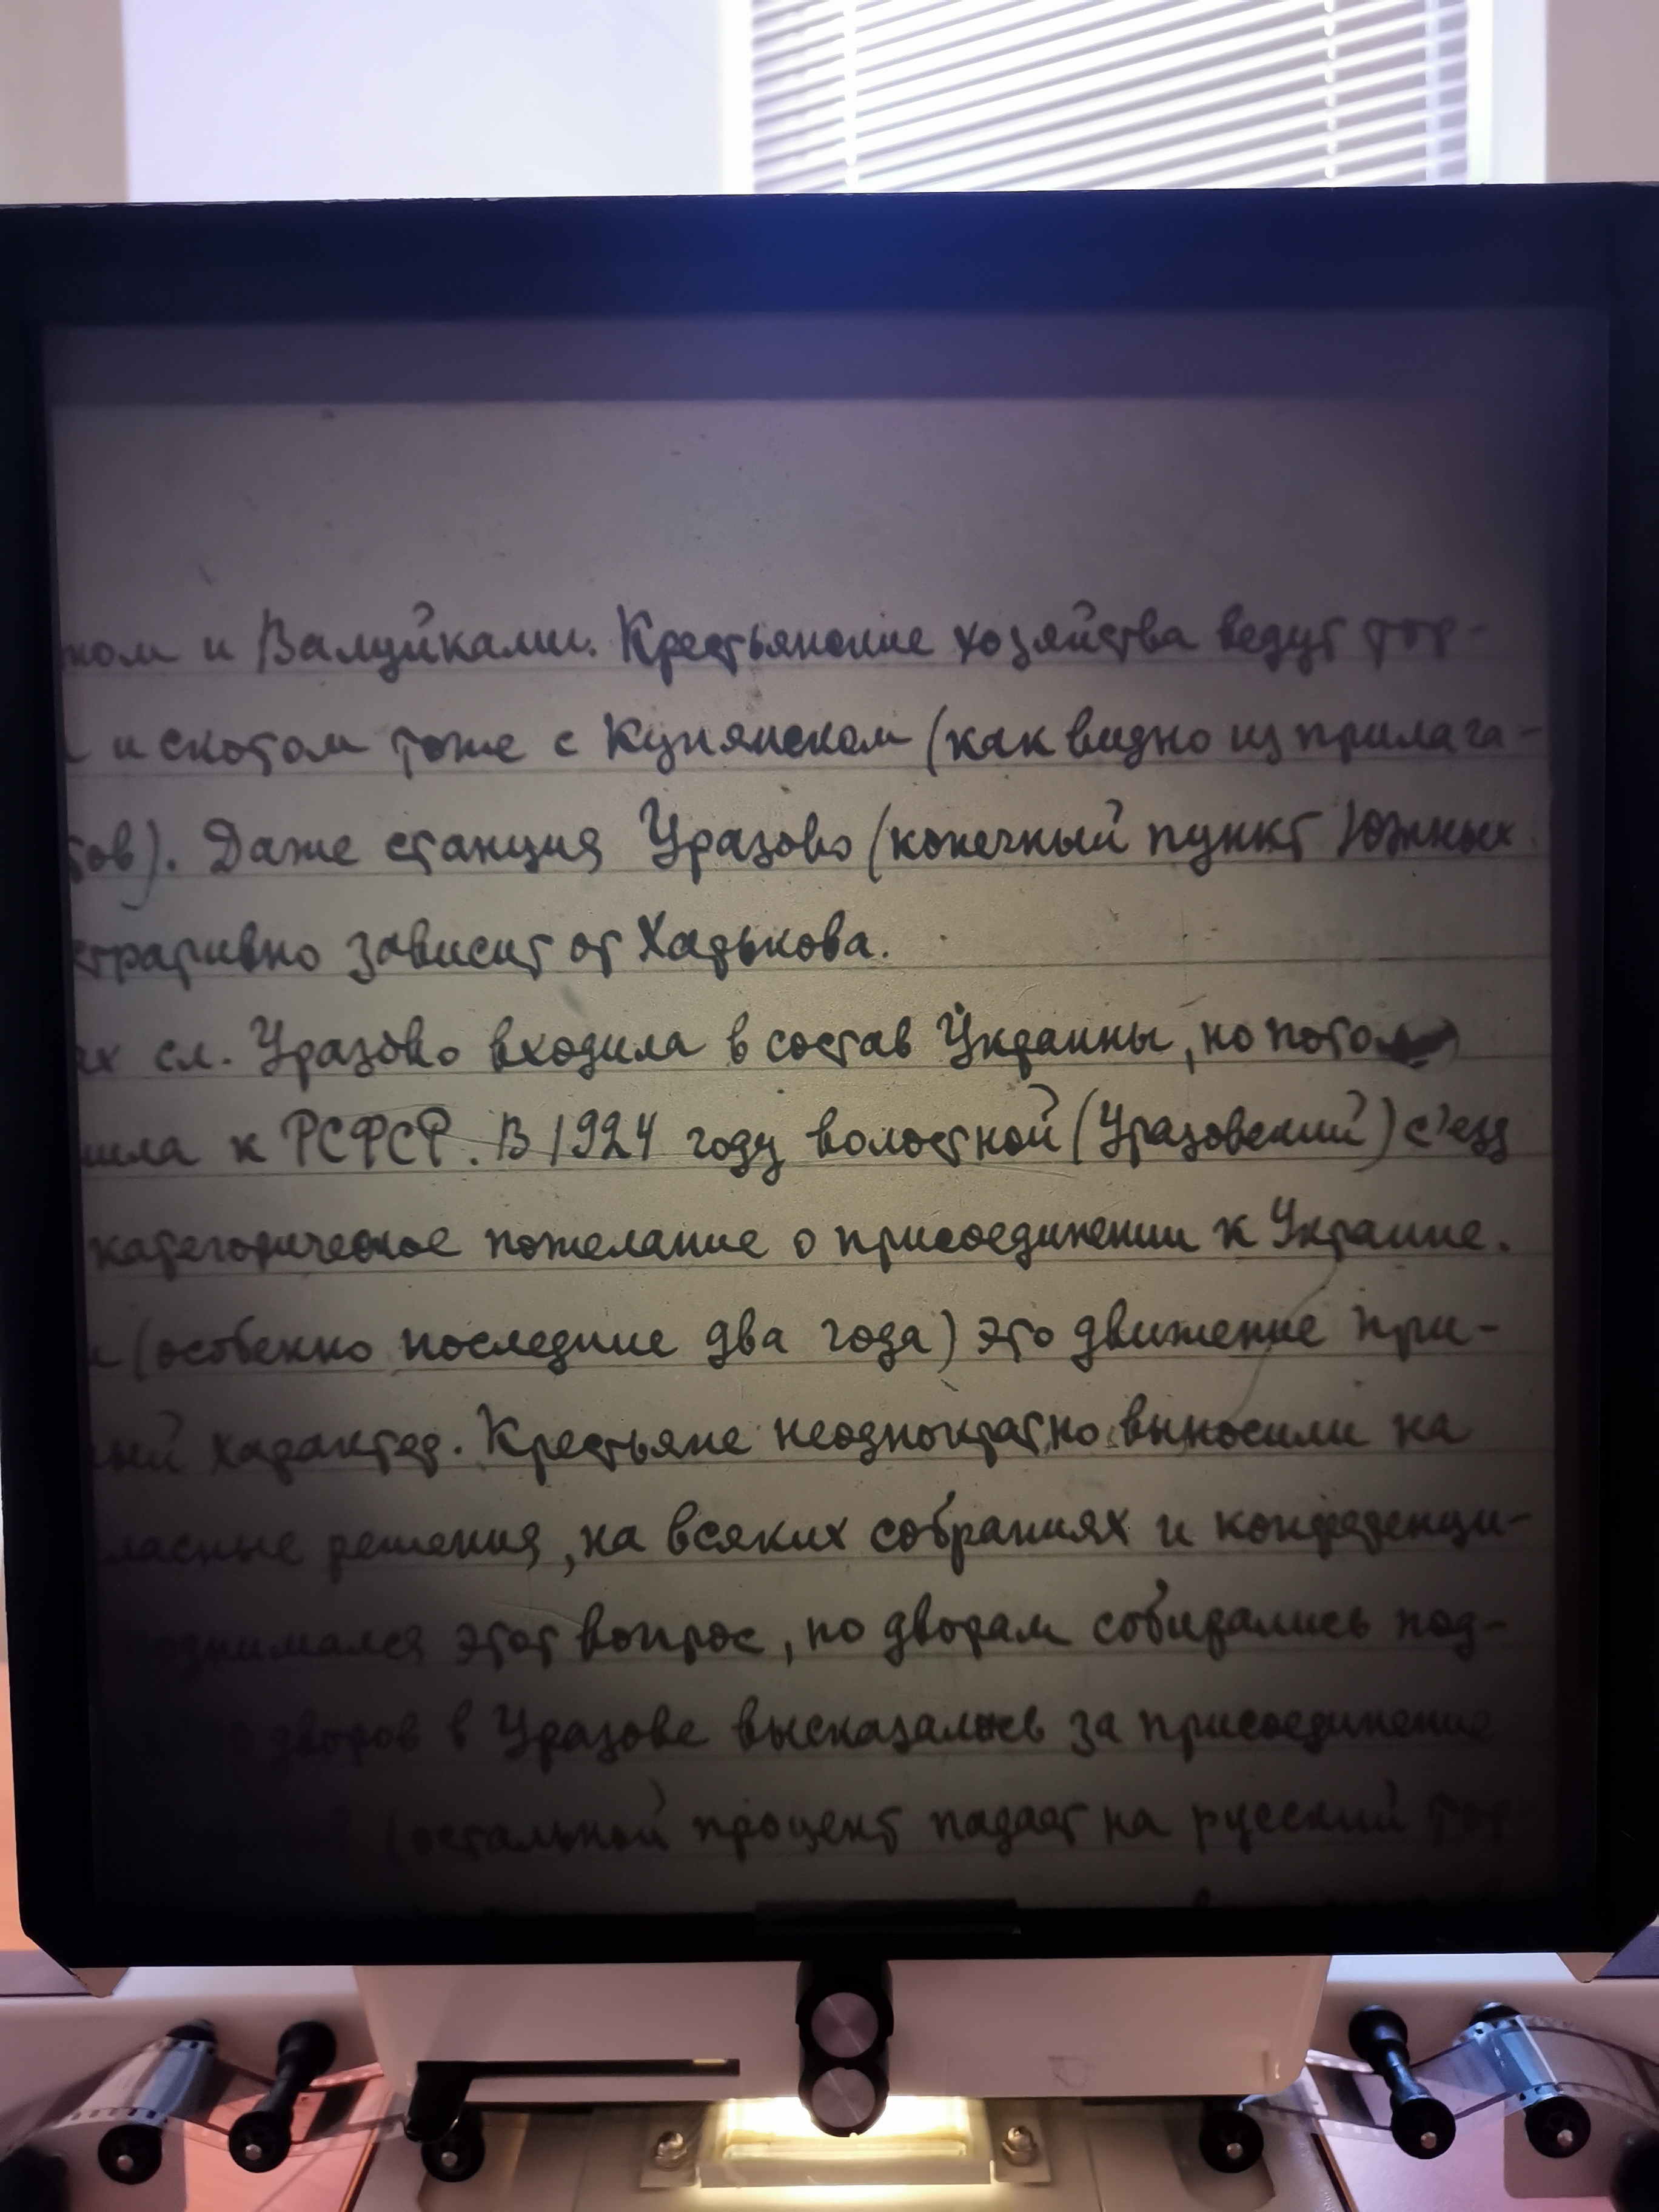 ном и Валуйками. Крестьянские хозяйства ведут тор-
и скотом тоже с Купянском (как видно из прилага-
тов). Даже станция Уразово (конечный пункт Южных
стративно зависит от Харькова.
ах сл. Уразово входила в состав Украины, но потом
шла к РСФСР. В 1924 году волостной (Уразовский) с'езд
категорическое пожелание о присоединении к Украине.
и (особенно последние два года) это движение при-
ный характер. Крестьяне неоднократно выносили на
ласные решения, на всяких собраниях и конференци-
поднимался этот вопрос, по дворам собирались под-
дворов в Уразове высказалось за присоединение
(остальной процент падает на русский тор-